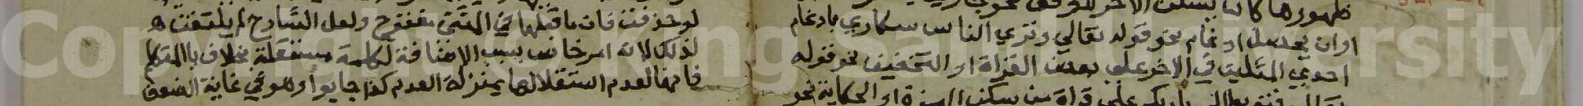 ظهورها كان يسكن الآخر للوقف نحو
او ان يحصل ادغام نحو قوله تعالي وتري الناس سكاري بادغام
احدي المثلين في الاخر علي بعض القراة او التخفيف نحو قوله
علي قراة من سكن الهمزة او الحكاية نحو
لوحذفت فان ما قبلها في المثني مفتوح ولعل الشارح لم يلتفت
لذلك لانه امر خاص بسبب الاضافة لكلمة مستقلة بخلاف يا المتكلم
فانها لعدم استقلالها بمنزلة العدم كذا اجابوا وهو في غاية الضعف